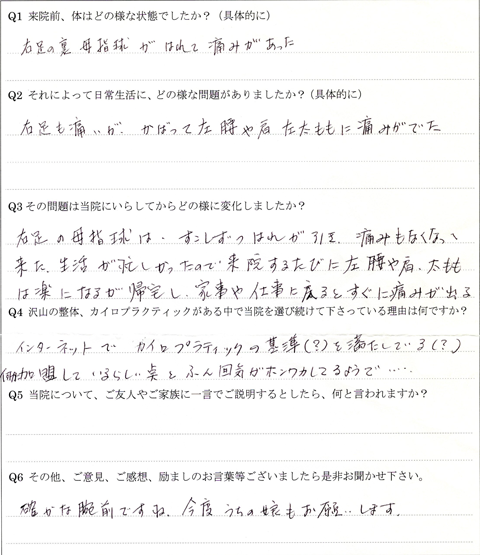 Q1 来院前、体はどの様な状態でしたか？（具体的に）
右足の裏 母指球 がはれて 痛みがあった
Q2 それによって日常生活に、どの様な問題がありましたか？（具体的に）
右足も痛いが、かばって左腰や肩 左太ももに痛みがでた
Q3 その問題は当院にいらしてからどの様に変化しましたか？
右足の母指球は、すこしずつはれが引き、痛みもなくなって
来た。生活が忙しかったので来院するたびに左腰や肩、太もも
は楽になるが帰宅し、家事や仕事に戻るとすぐに痛みが出る
Q4 沢山の整体、カイロプラクティックがある中で当院を選び続けて下さっている理由は何ですか？
インターネットで カイロプラティックの基準(?)を満たしている(?)
加盟しているらしい点とふん回気がホンワカしてるようで‥‥
Q5 当院について、ご友人やご家族に一言でご説明するとしたら、何と言われますか？
Q6 その他、ご意見、ご感想、励ましのお言葉等ございましたら是非お聞かせ下さい。
確かな腕前ですね、今度うちの娘もお願いします。